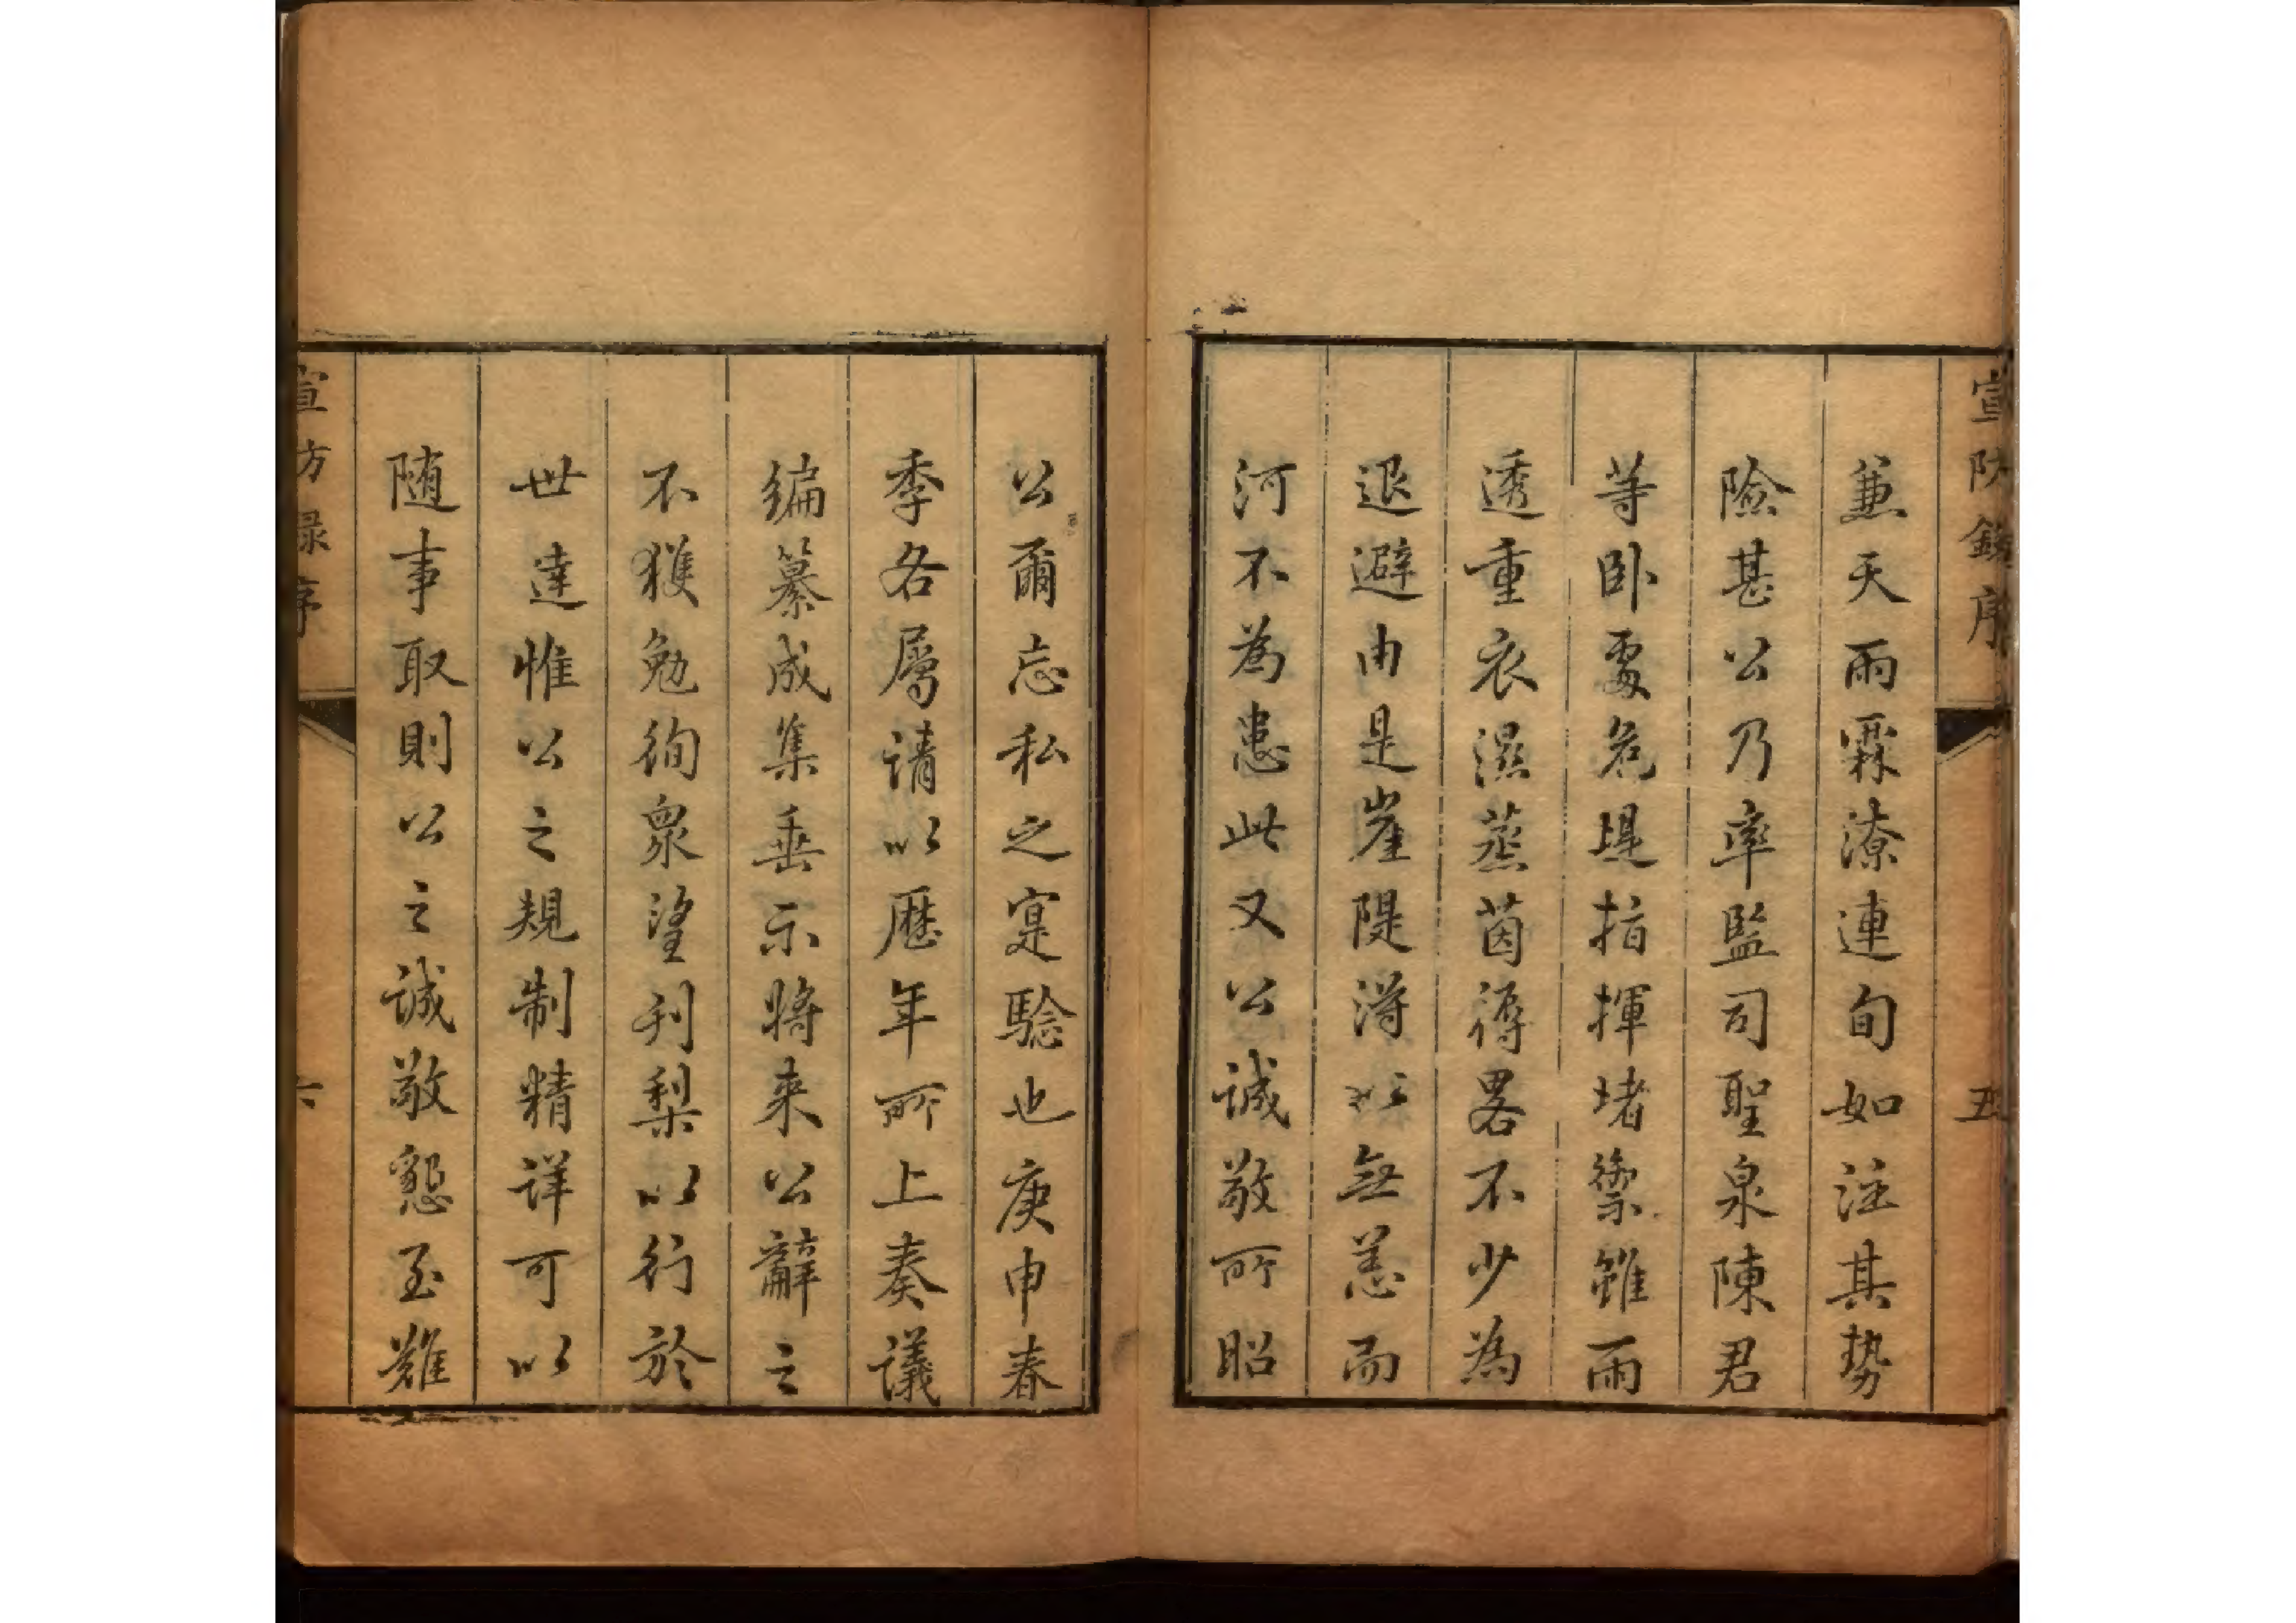 宣防錄序
五
兼天雨霖潦連旬如注其勢
險甚公乃率監司聖泉陳君
等卧處危堤指揮堵禦雖雨
透重衣濕蒸茵褥畧不少為
退避由是崖隄得以無恙而
河不為患此又公誠敬所昭
公爾忘私之寔驗也庚申春
季各屬請以歷年所上奏議
編纂成集垂示將来公辭之
不獲勉徇衆望刋梨以行於
世達惟公之規制精詳可以
随事取則公之誠敬懇至難
宣防録序
六